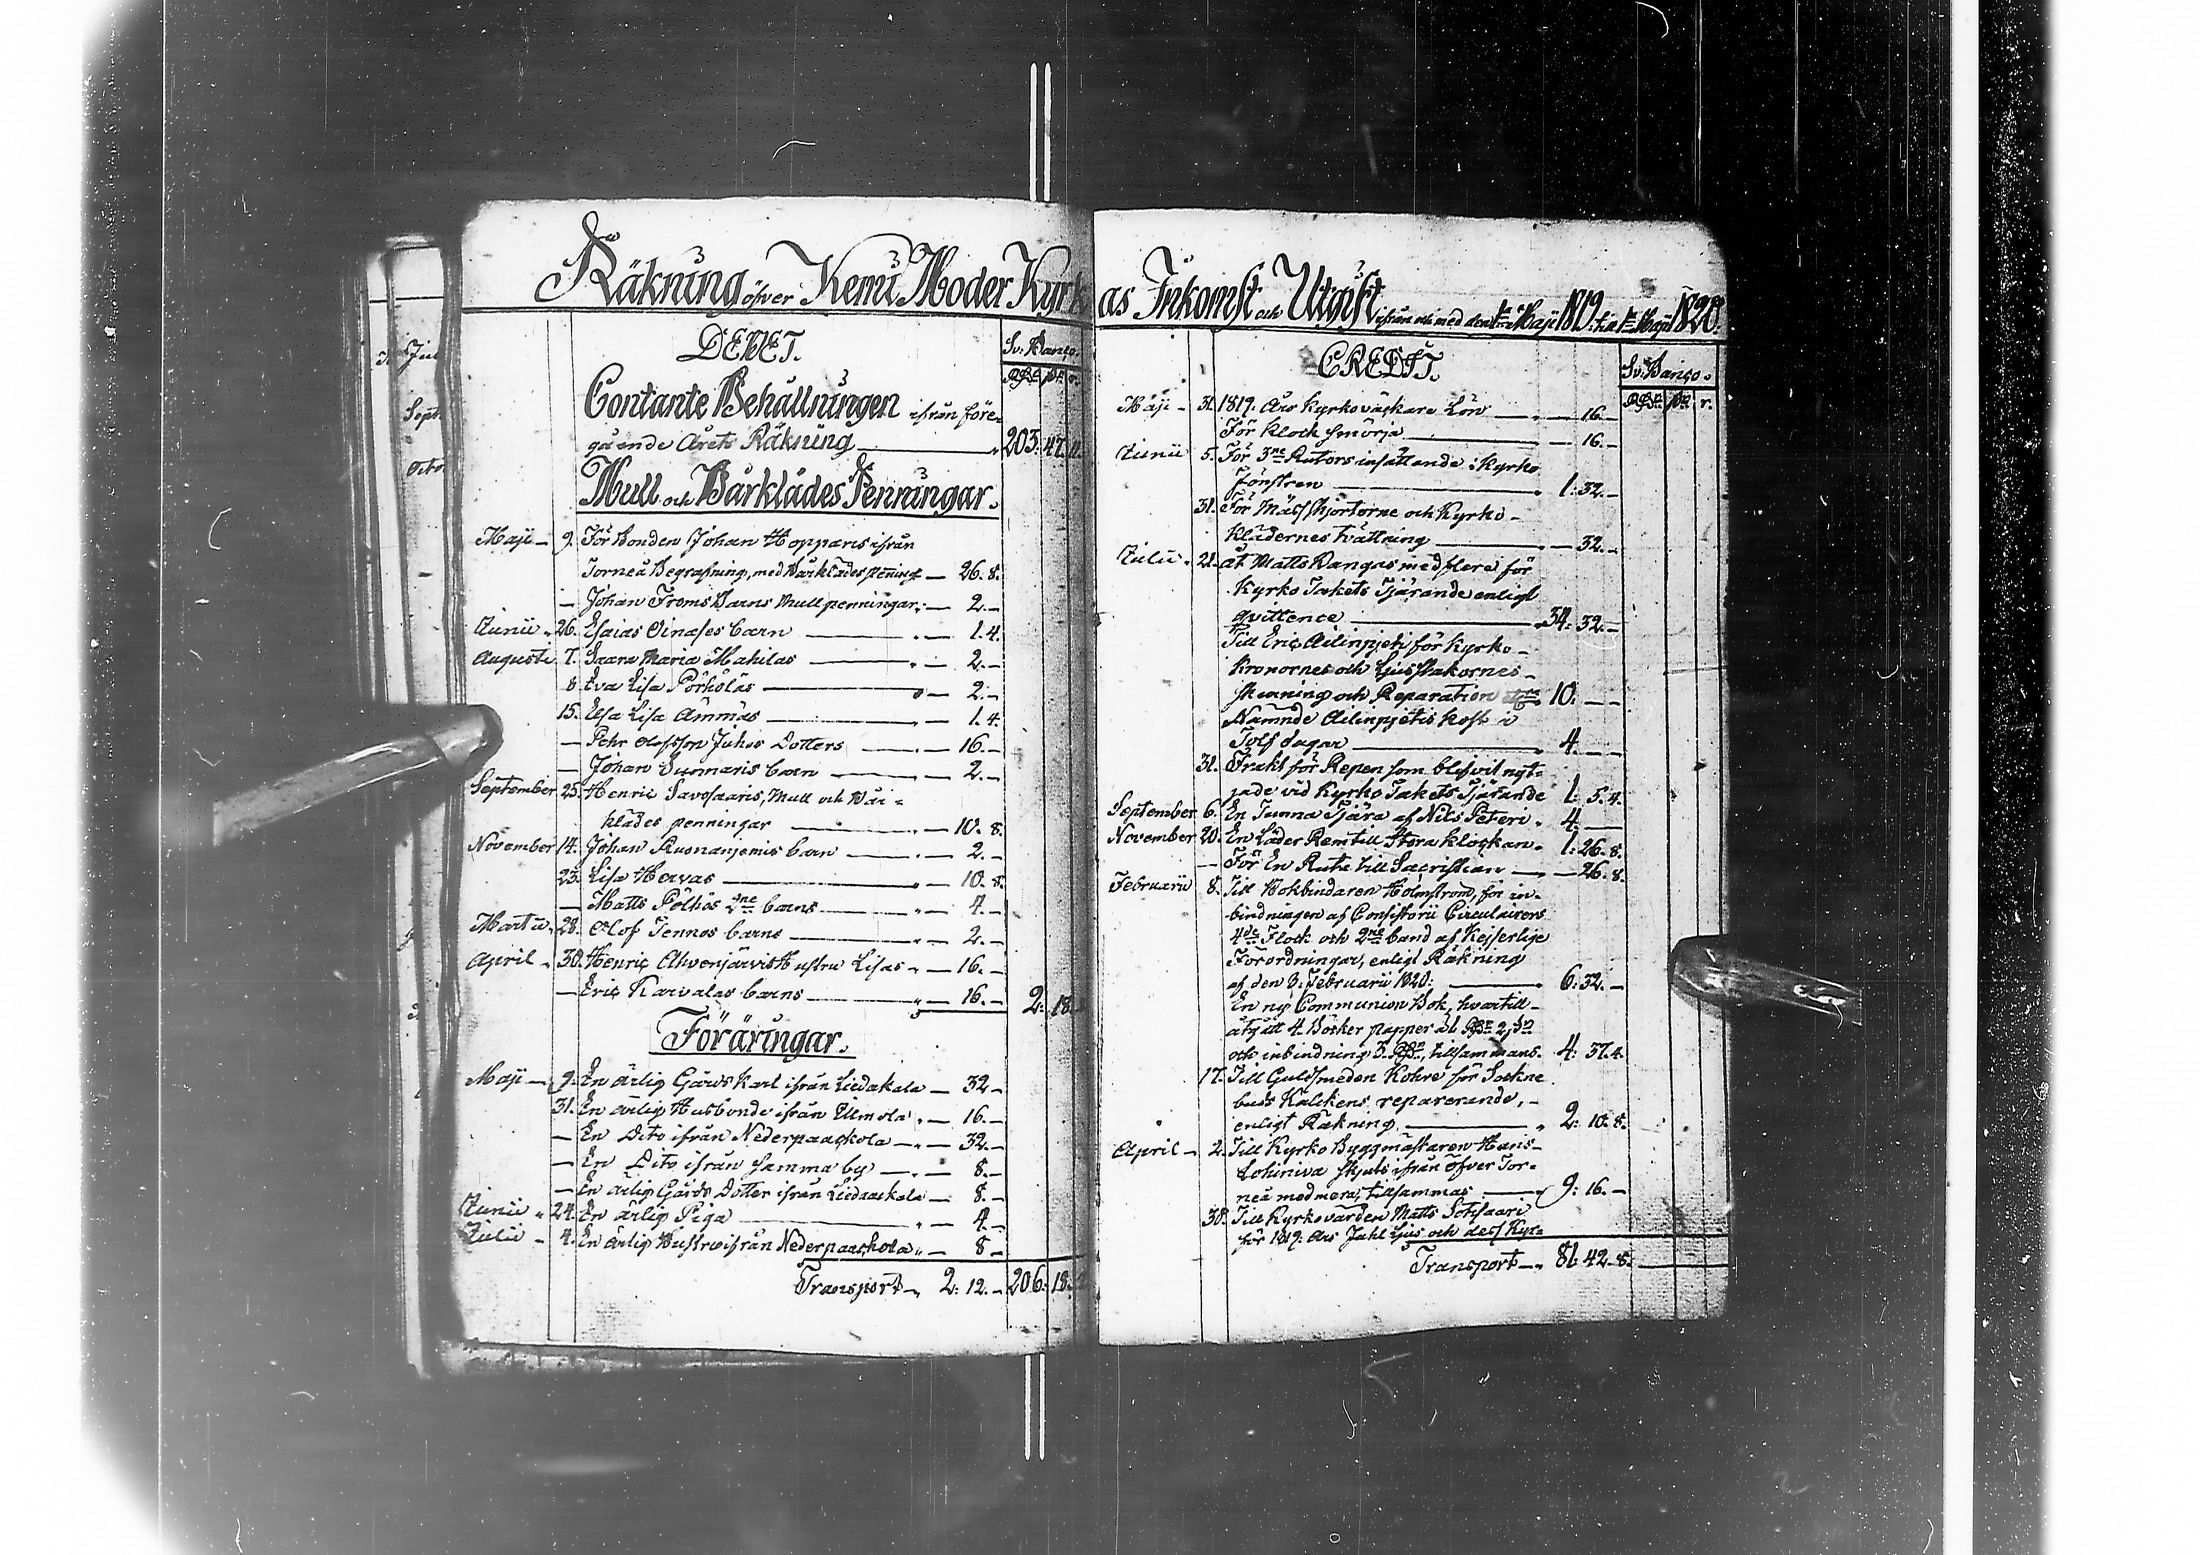 Räkning öfver Kemi Moder Kyrk
DEBET.
Sv: Banco.
Contante Behållningen ifrån före-
gående Årets Räkning 203. 47. 11.
Mull och Bårklädes Penningar.
Maji 9. För Bonden Johan Hoppars ifrån
Torneå Begrafning, med Bårklädes penning — 26. 8.
— Johan Froms Barns Mullpenningar — 2. —
Junii 26. Esaias Oinases barn — 1. 4.
Augusti 7. Saara Maria Mahilas — 2. —
8. Eva Lisa Pörhöläs — 2. —
15. Elsa Lisa Ämmäs — 1. 4.
— Pehr Olofsson Juhos Dotters — 16. —
— Johan Suomaris barn — 2. —
September 25. Henric Savosaaris, Mull och Bår-
klädes penningar — 10. 8.
November 14. Johan Ruonanjemis barn — 2. —
23. Lisa Hervas — 10. 8.
— Matts Pölhös 2ne barns — 4. —
Martii 28. Olof Jennos barns — 2. —
April 30. Henric Ahvenjärvis Hustru Lisas — 16. —
— Eric Karvalas barns — 16. — 2. 18.
Föräringar.
Maji 9. En ärlig Gårds Karl ifrån Liedakala — 32 —
31. En ärlig Husbonde ifrån Ilmola — 16. —
— En Dito ifrån Nederpaackola — 32. —
— En Dito ifrån samma by — 8. —
— En ärlig Gårds Dotter ifrån Liedaackala — 8. —
Junii 24. En ärlig Piga — 4. —
Julii 4. En ärlig Hustru ifrån Nederpaackola — 8 —
Transport 2: 12. — 206: 18.
as Inkomst och Utgift ifrån och med den 1 Maji 1819. til 1 Maji 1820.
CREDIT.
Sv: Banco.
Maji 31. 1819: Års Kyrkoväckare Lön — 16. —
För Klock smörja — 16. —
Junii 5. För 3ne Rutors insättande i Kyrko
Fönstren 1: 32. —
31. För Mässskjortorne och Kyrko-
klädernes tvättning — 32. —
Julii 21. åt Matts Kangas med flere för
Kyrko Takets Tjärande enligt
qvittence 34: 32. —
Till Eric Ailinpieti för Kyrko-
kronornes och Ljusstakarnes
skurning och Reparation 10. —
Nämnde Ailinpietis kost i
Tolf dagar 4. —
31. Frakt för Repen som blifvit nyt-
jade vid Kyrko Takets Tjärande 1: 5. 4.
September 6. En Tunna Tjära af Nils Peteri 4. —
November 20. En Läder Rem till Stora klockan 1: 26. 8.
— För En Ruta till Sacristian — 26. 8.
Februarii 8. Till Bokbindaren Holmström, för in-
bindningen af Consistorii Circulairers
4de Flock och 2ne band af Kejserlige
Förordningar, enligt Räkning
af den 8. Februarii 1820: 6: 32. —
En ny Communion Bok, hvartill
åtgått 4. Böcker papper
och inbindning 3. tillsammans. 4: 37. 4.
17. Till Guldsmeden Kohre för Sockne
buds Kalkens reparerande,
enligt Räkning 2: 10. 8.
April 2. Till Kyrko Byggmästaren Hans
Lohiniva skjuts ifrån Öfver Tor-
neå med mera, tillsammas 9: 16. —
30. Till Kyrkovärden Matts Sotisaari
för 1819: Års Jahl Ljus och dess Kyr-
Transport 81: 42. 8.